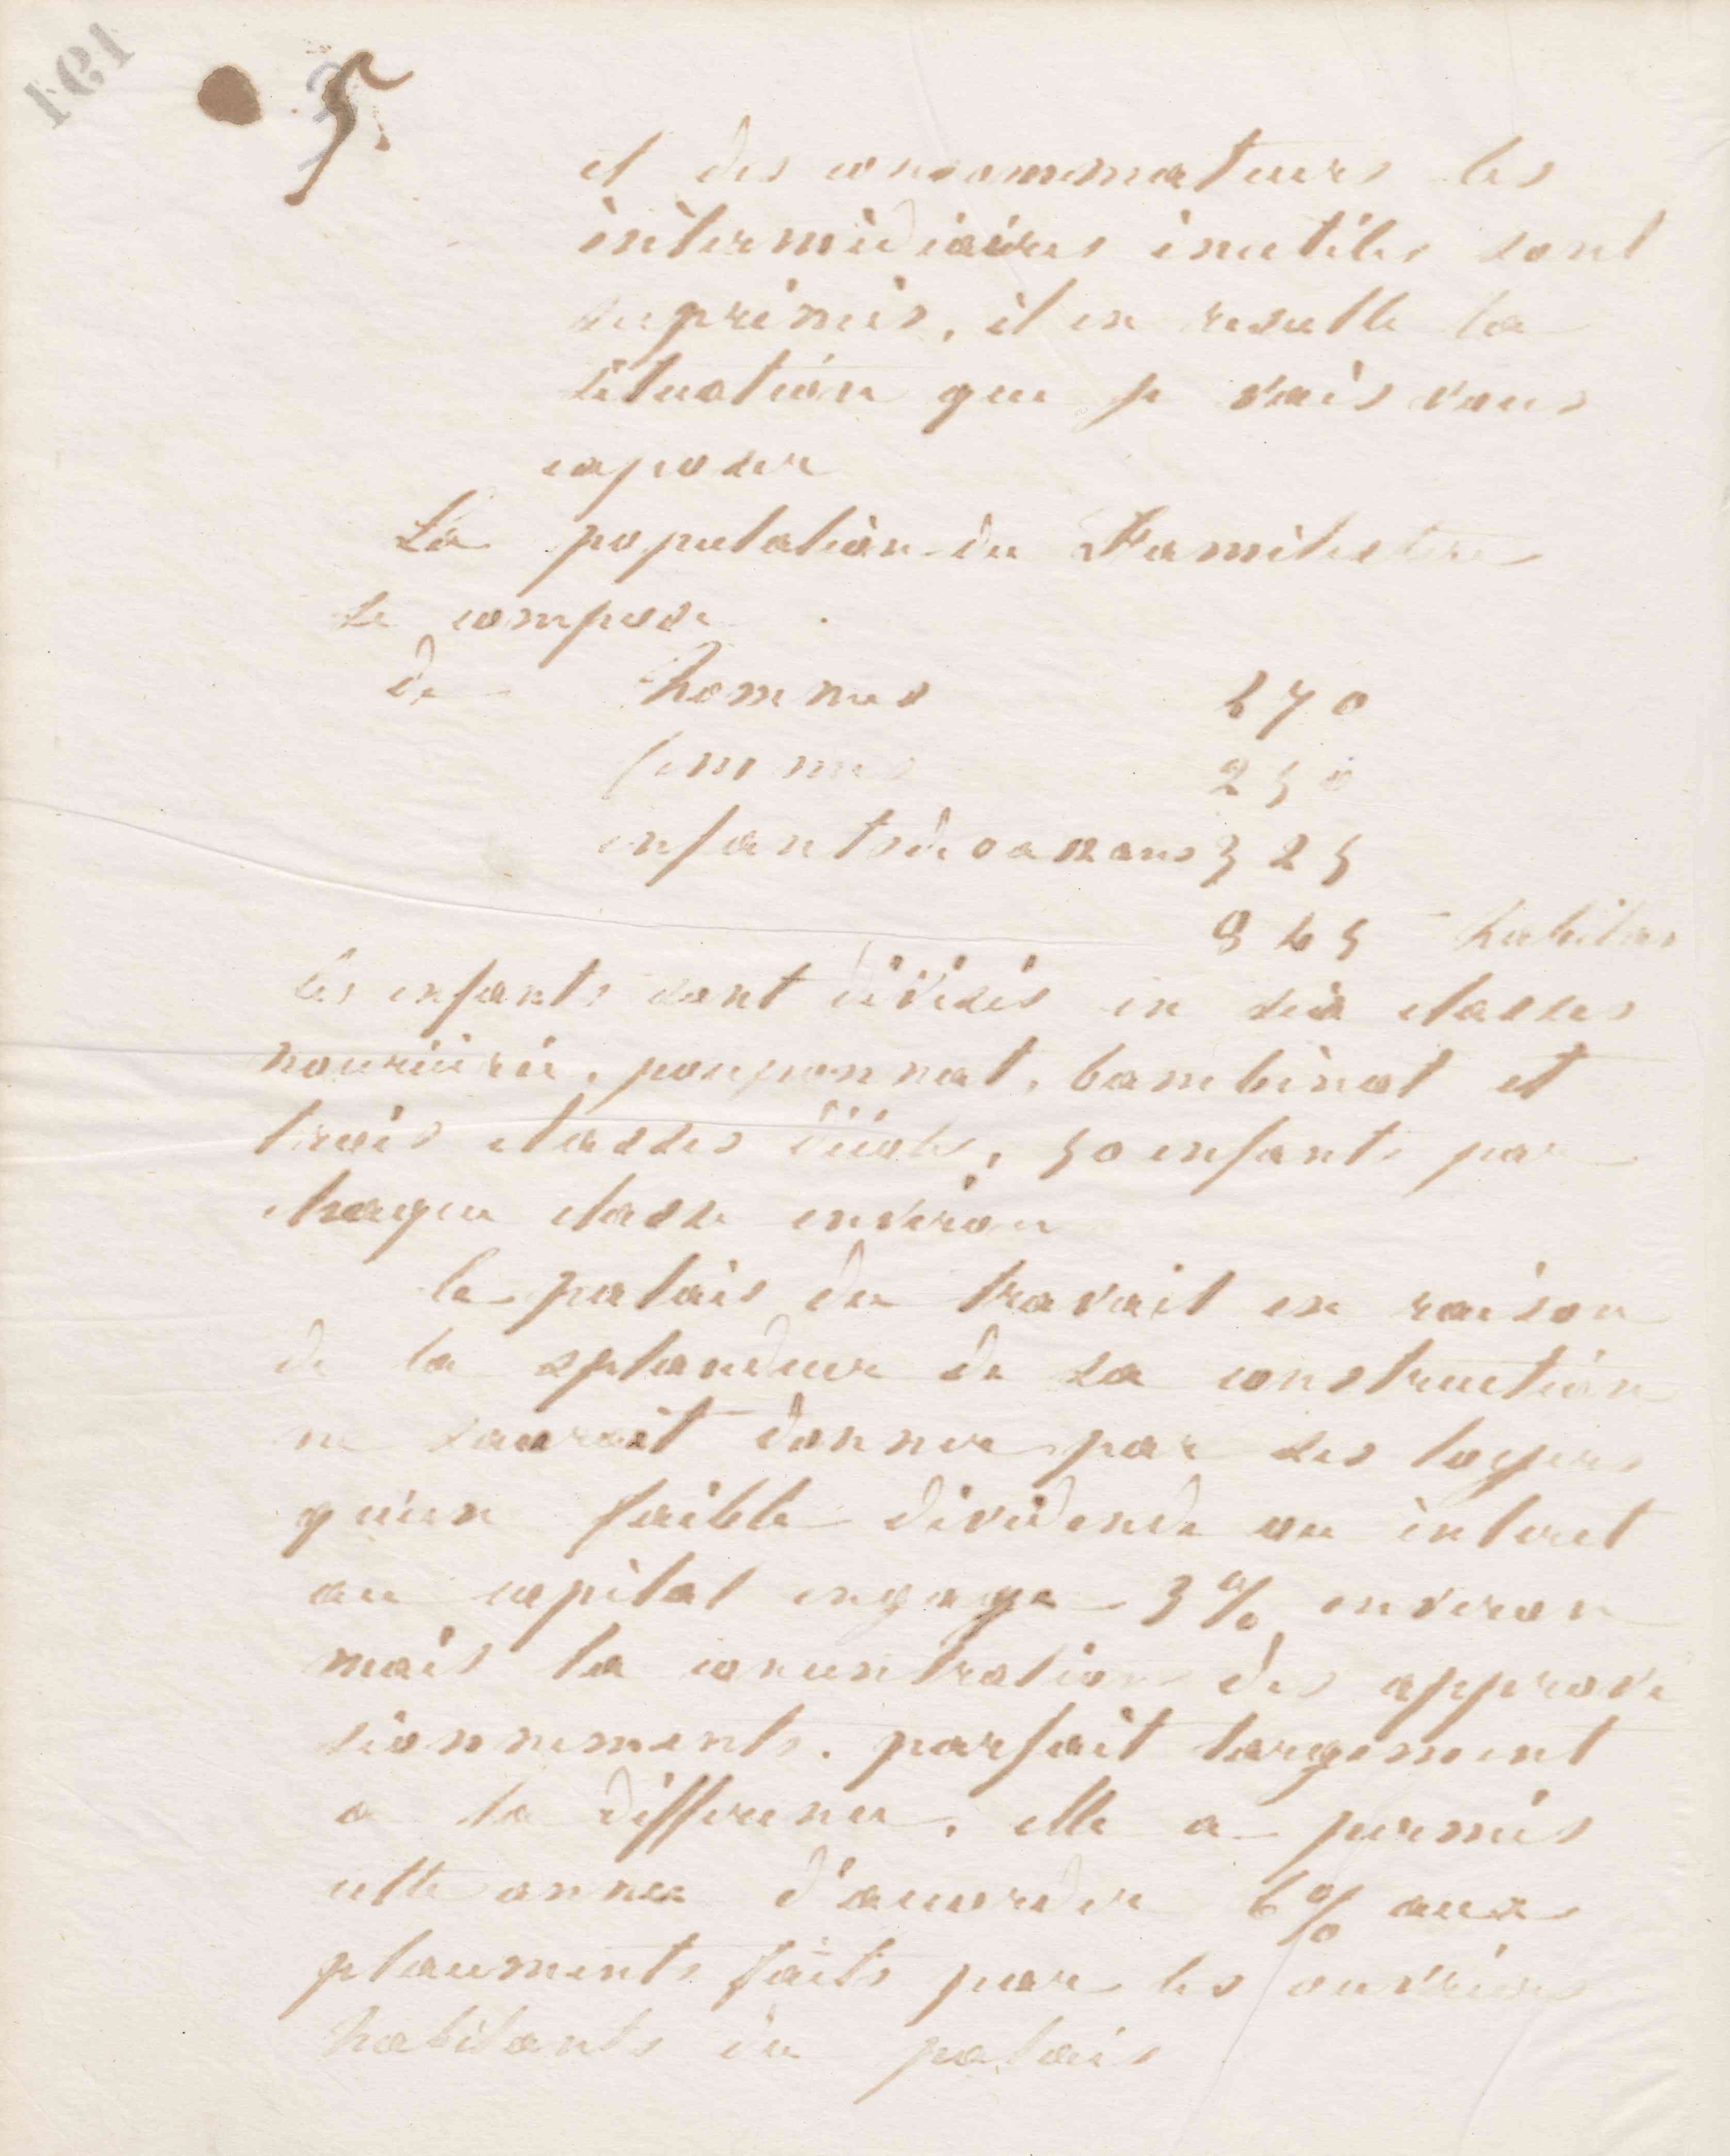 191
5
et des consommateurs les
intermediaires inutiles sont
suprimés, il en resulte la
situation que je vais vous
exposer
La population du Familistere
se compose
de hommes 270
femmes 250
enfants de 0 a 12 ans 325
845 habitan
Les enfants sont divisés en six classes
nourricerie, pouponnat, bambinat et
trois classes d'école, 50 enfants par
chaque classe environ
le palais du travail en raison
de la splendeur de sa construction
ne saurait donner par ses loyers
qu'un faible dividende ou interet
au capital engage 3% environ
mais la concentration des approvi
sionnements. parfait largement
a la difference, elle a permis
cette annee d'accorder 6% aux
placements faits par les ouvriers
habitants du palais